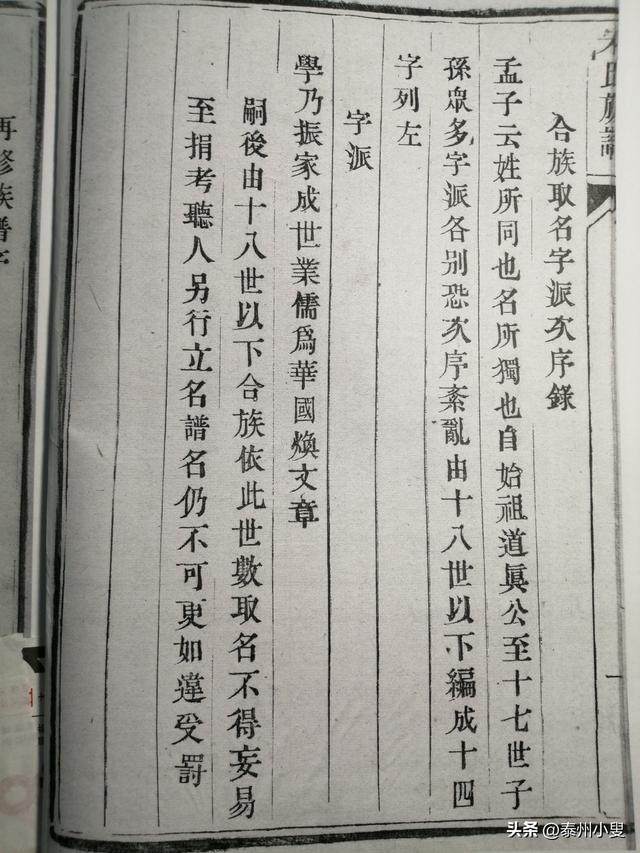 氏族譜
合族取名字派次序錄
孟子云姓所同也名所獨也自始祖道眞公至十七世子
孫眾多字派各別恐次序紊亂由十八世以下編成十四
字列左
字派
學乃振家成世業儒爲華國煥文章
嗣後由十八世以下合族依此世數取名不得妄易
至捐考聽人另行立名譜名仍不可更如違受罰
一
再修族譜序
头条 @泰州小叟